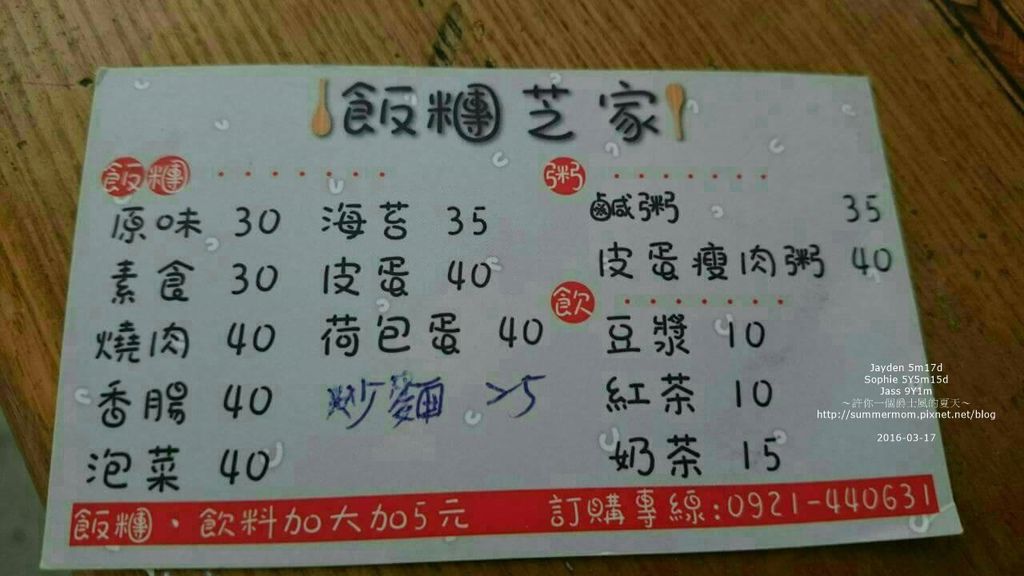 飯糰芝家
飯糰
原味 30 海苔 35
素食 30 皮蛋 40
燒肉 40 荷包蛋 40
香腸 40 炒麵 25
泡菜 40
粥
鹹粥 35
皮蛋瘦肉粥 40
飲
豆漿 10
紅茶 10
奶茶 15
飯糰、飲料加大加5元 訂購專線:0921-440631
Jayden 5m17d
Sophie 5Y5m15d
Jass 9Y1m
~許你一個爵士風的夏天~
http://summermom.pixnet.net/blog
2016-03-17